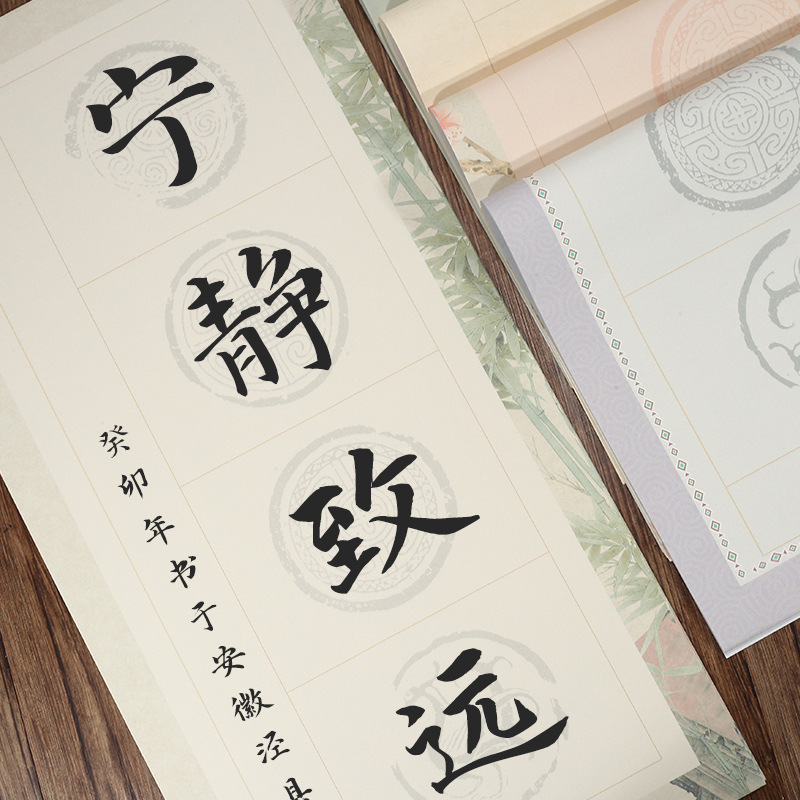 宁静致远
癸卯年书于安徽泾县